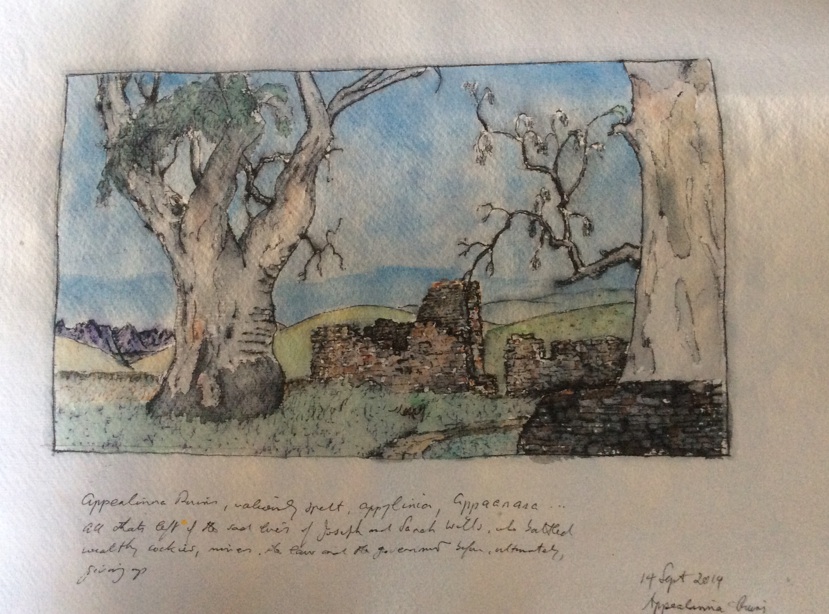 Appealinna Ruins, variously spelt, appylinia, Appaenasa ...
all thats left of the sad lives of Joseph and Sarah Wills, who battled
wealthy cockies, mines, the law and the government before, ultimately,
giving up
14 Sept 2014
Appealinna Ruins